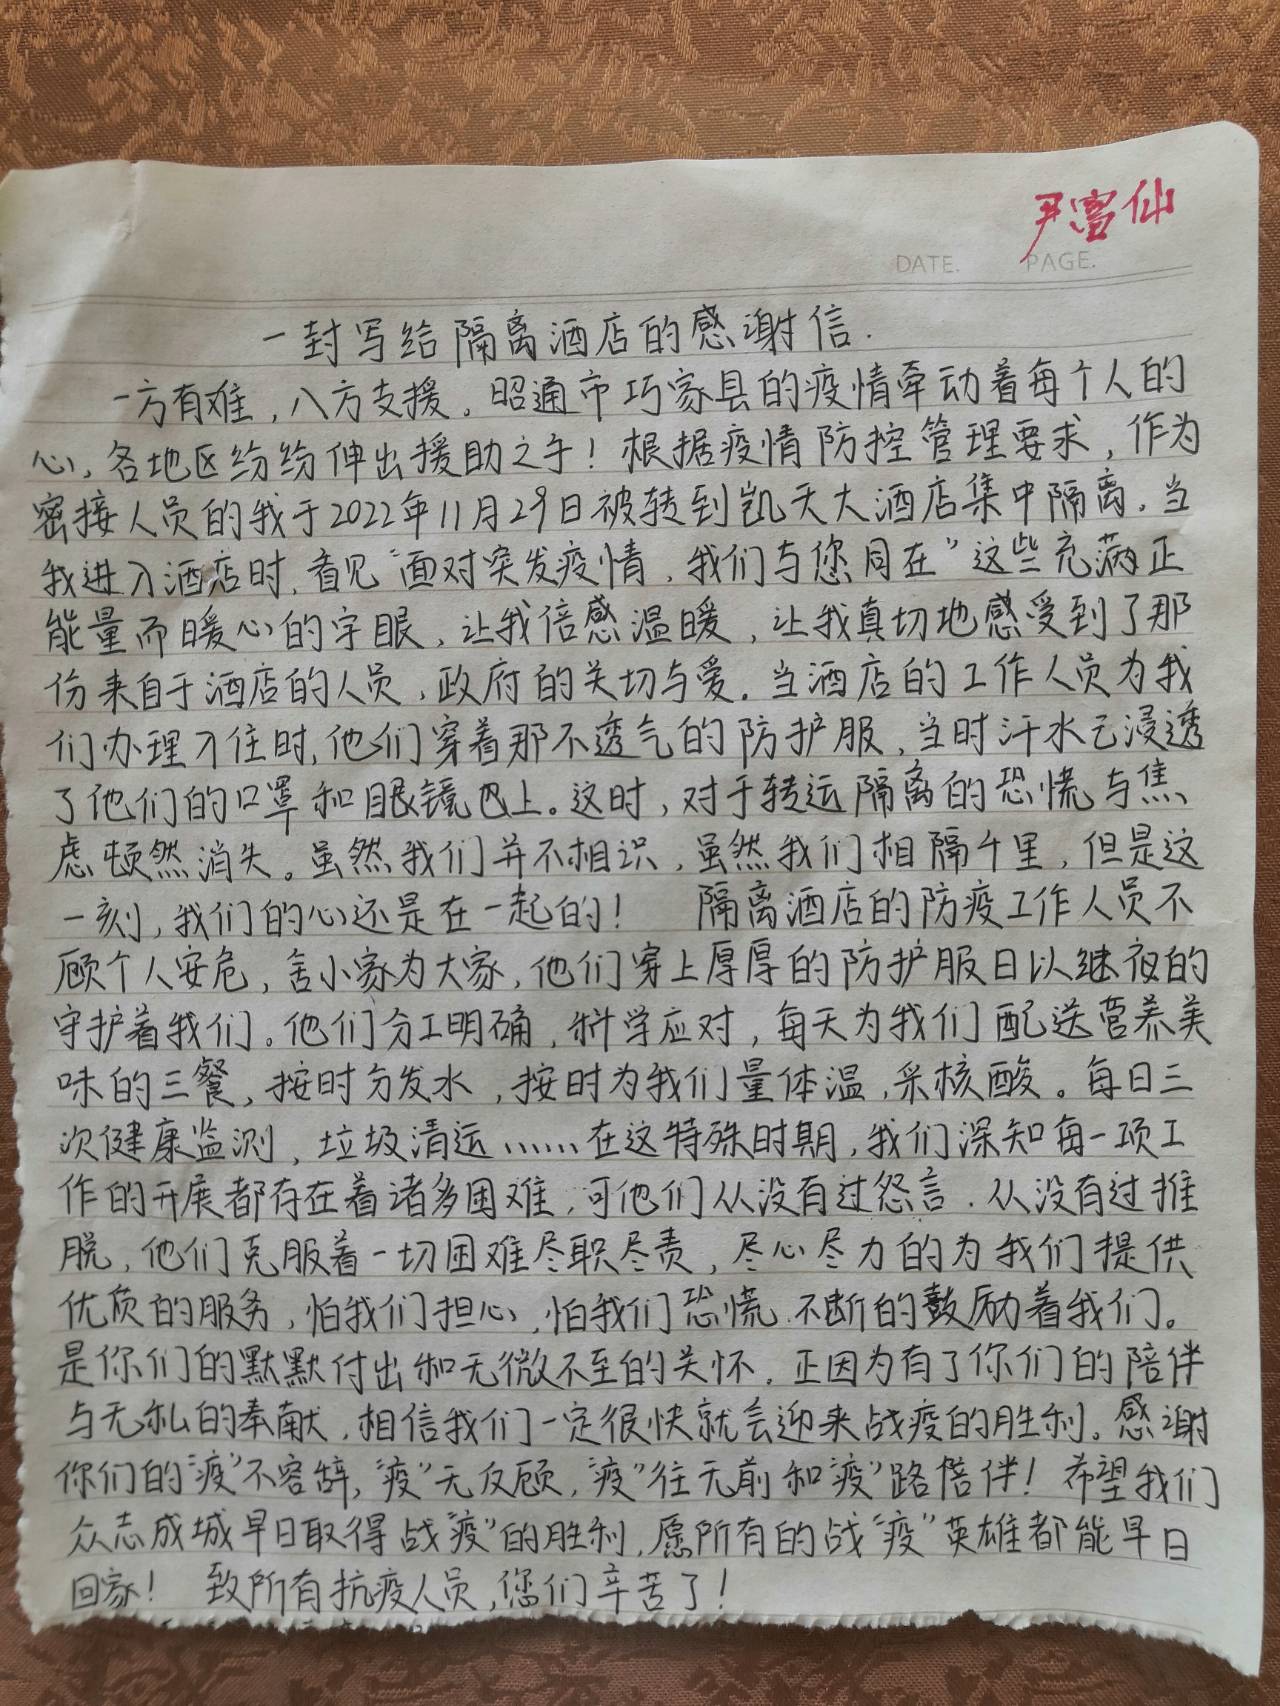 尹富仙
DATE. PAGE.
一封写给隔离酒店的感谢信.
一方有难，八方支援。昭通市巧家县的疫情牵动着每个人的
心，各地区纷纷伸出援助之手！根据疫情防控管理要求，作为
密接人员的我于2022年11月29日被转到凯天大酒店集中隔离。当
我进入酒店时，看见“面对突发疫情，我们与您同在”这些充满正
能量而暖心的字眼，让我倍感温暖，让我真切地感受到了那
份来自于酒店的人员，政府的关切与爱。当酒店的工作人员为我
们办理入住时，他们穿着那不透气的防护服，当时汗水已浸透
了他们的口罩和眼镜巴上。这时，对于转运隔离的恐慌与焦
虑顿然消失。虽然我们并不相识，虽然我们相隔千里，但是这
一刻，我们的心还是在一起的！ 隔离酒店的防疫工作人员不
顾个人安危，舍小家为大家，他们穿上厚厚的防护服日以继夜的
守护着我们。他们分工明确，科学应对，每天为我们配送营养美
味的三餐，按时分发水，按时为我们量体温，采核酸。每日三
次健康监测，垃圾清运……在这特殊时期，我们深知每一项工
作的开展都存在着诸多困难，可他们从没有过怨言．从没有过推
脱，他们克服着一切困难尽职尽责，尽心尽力的为我们提供
优质的服务，怕我们担心，怕我们恐慌．不断的鼓励着我们。
是你们的默默付出和无微不至的关怀．正因为有了你们的陪伴
与无私的奉献，相信我们一定很快就会迎来战疫的胜利。感谢
你们的“疫”不容辞，“疫”无反顾，“疫”往无前和“疫”路陪伴！希望我们
众志成城早日取得战“疫”的胜利，愿所有的战“疫”英雄都能早日
回家！ 致所有抗疫人员，您们辛苦了！